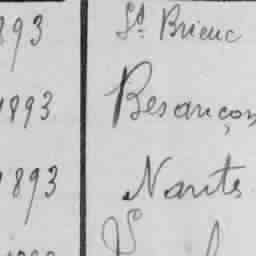 893 St Brieuc
1893 Besançon
1893 Nantes